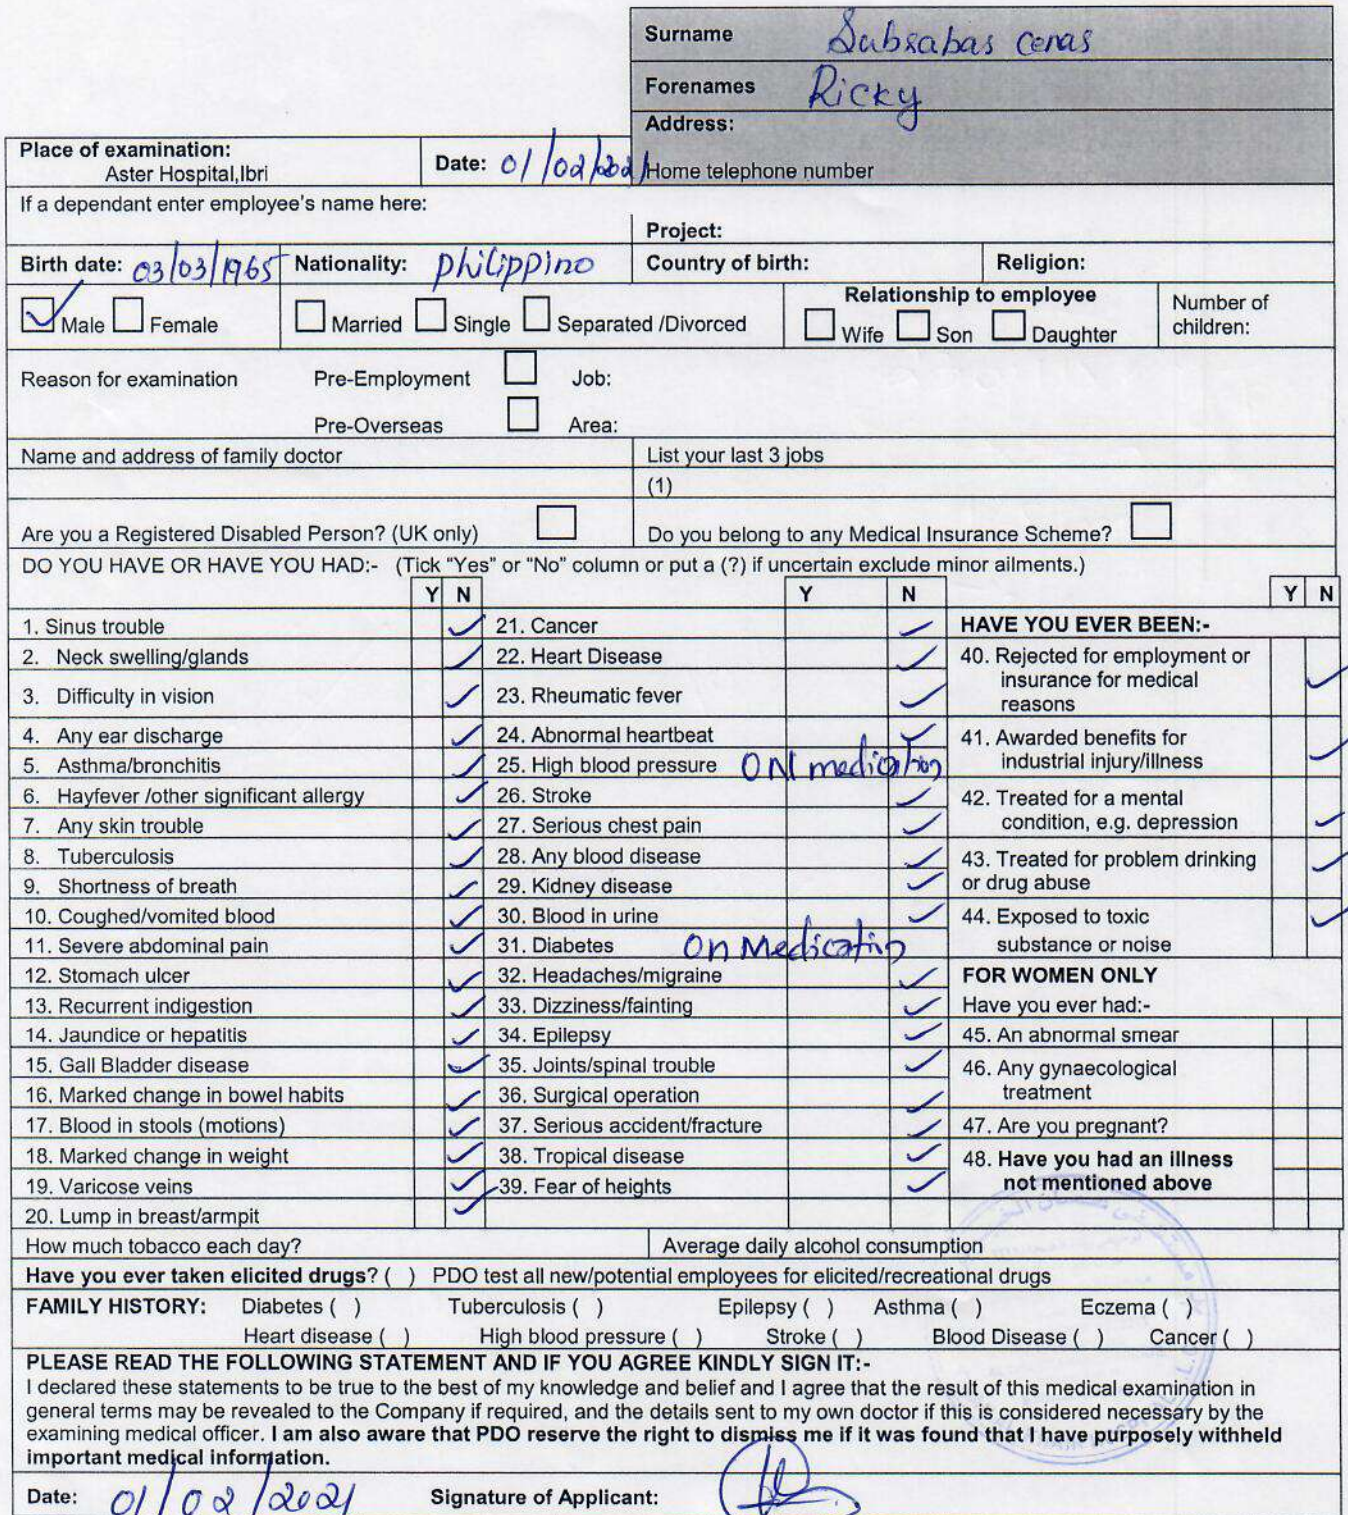 Surname Subsabas cenas
Forenames Ricky
Address:
Place of examination: Aster Hospital,Ibri
Date: 01/02/2021
Home telephone number
If a dependant enter employee's name here:
Project:
Birth date: 03/03/1965 Nationality: philippino Country of birth: Religion:
✓ Male Female Married Single Separated /Divorced Relationship to employee Wife Son Daughter Number of children:
Reason for examination Pre-Employment Job:
Pre-Overseas Area:
Name and address of family doctor List your last 3 jobs
(1)
Are you a Registered Disabled Person? (UK only) Do you belong to any Medical Insurance Scheme?
DO YOU HAVE OR HAVE YOU HAD:- (Tick "Yes" or "No" column or put a (?) if uncertain exclude minor ailments.)
Y N Y N Y N
1. Sinus trouble ✓
2. Neck swelling/glands ✓
3. Difficulty in vision ✓
4. Any ear discharge ✓
5. Asthma/bronchitis ✓
6. Hayfever /other significant allergy ✓
7. Any skin trouble ✓
8. Tuberculosis ✓
9. Shortness of breath ✓
10. Coughed/vomited blood ✓
11. Severe abdominal pain ✓
12. Stomach ulcer ✓
13. Recurrent indigestion ✓
14. Jaundice or hepatitis ✓
15. Gall Bladder disease ✓
16. Marked change in bowel habits ✓
17. Blood in stools (motions) ✓
18. Marked change in weight ✓
19. Varicose veins ✓
20. Lump in breast/armpit ✓
21. Cancer ✓
22. Heart Disease ✓
23. Rheumatic fever ✓
24. Abnormal heartbeat ✓
25. High blood pressure ON medication
26. Stroke ✓
27. Serious chest pain ✓
28. Any blood disease ✓
29. Kidney disease ✓
30. Blood in urine ✓
31. Diabetes On Medication
32. Headaches/migraine ✓
33. Dizziness/fainting ✓
34. Epilepsy ✓
35. Joints/spinal trouble ✓
36. Surgical operation ✓
37. Serious accident/fracture ✓
38. Tropical disease ✓
39. Fear of heights ✓
HAVE YOU EVER BEEN:-
40. Rejected for employment or
insurance for medical
reasons ✓
41. Awarded benefits for
industrial injury/illness ✓
42. Treated for a mental
condition, e.g. depression ✓
43. Treated for problem drinking
or drug abuse ✓
44. Exposed to toxic
substance or noise ✓
FOR WOMEN ONLY
Have you ever had:-
45. An abnormal smear
46. Any gynaecological
treatment
47. Are you pregnant?
48. Have you had an illness
not mentioned above
How much tobacco each day? Average daily alcohol consumption
Have you ever taken elicited drugs? ( ) PDO test all new/potential employees for elicited/recreational drugs
FAMILY HISTORY: Diabetes ( ) Tuberculosis ( ) Epilepsy ( ) Asthma ( ) Eczema ( )
Heart disease ( ) High blood pressure ( ) Stroke ( ) Blood Disease ( ) Cancer ( )
PLEASE READ THE FOLLOWING STATEMENT AND IF YOU AGREE KINDLY SIGN IT:-
I declared these statements to be true to the best of my knowledge and belief and I agree that the result of this medical examination in
general terms may be revealed to the Company if required, and the details sent to my own doctor if this is considered necessary by the
examining medical officer. I am also aware that PDO reserve the right to dismiss me if it was found that I have purposely withheld
important medical information.
Date: 01/02/2021 Signature of Applicant: